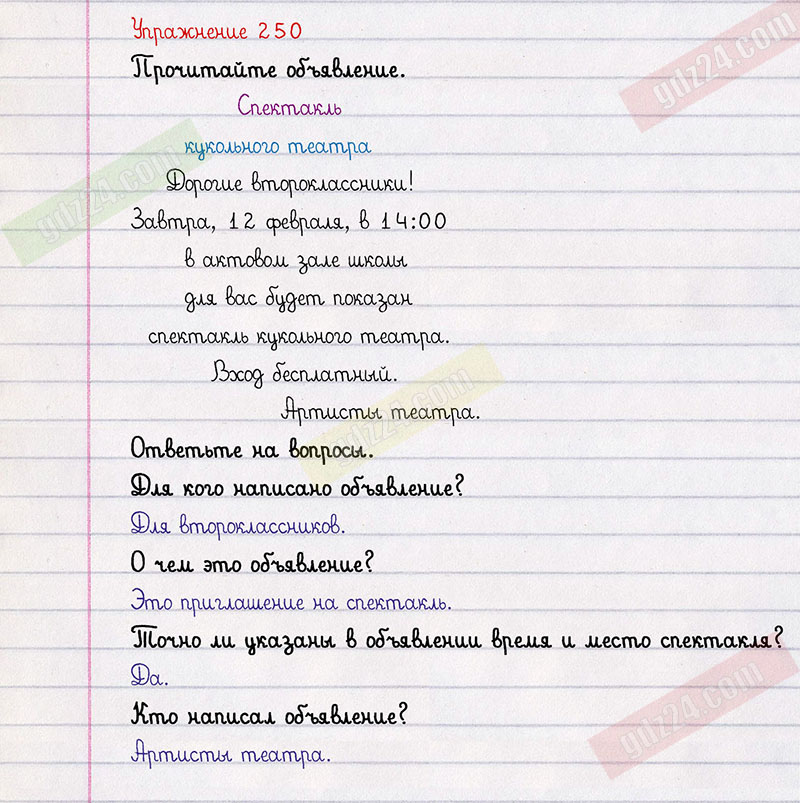 Упражнение 250
Прочитайте объявление.
Спектакль
кукольного театра
Дорогие второклассники!
Завтра, 12 февраля, в 14:00
в актовом зале школы
для вас будет показан
спектакль кукольного театра.
Вход бесплатный.
Артисты театра.
Ответьте на вопросы.
Для кого написано объявление?
Для второклассников.
О чем это объявление?
Это приглашение на спектакль.
Точно ли указаны в объявлении время и место спектакля?
Да.
Кто написал объявление?
Артисты театра.
gdz24.com
gdz24.com
gdz24.com
gdz24.com